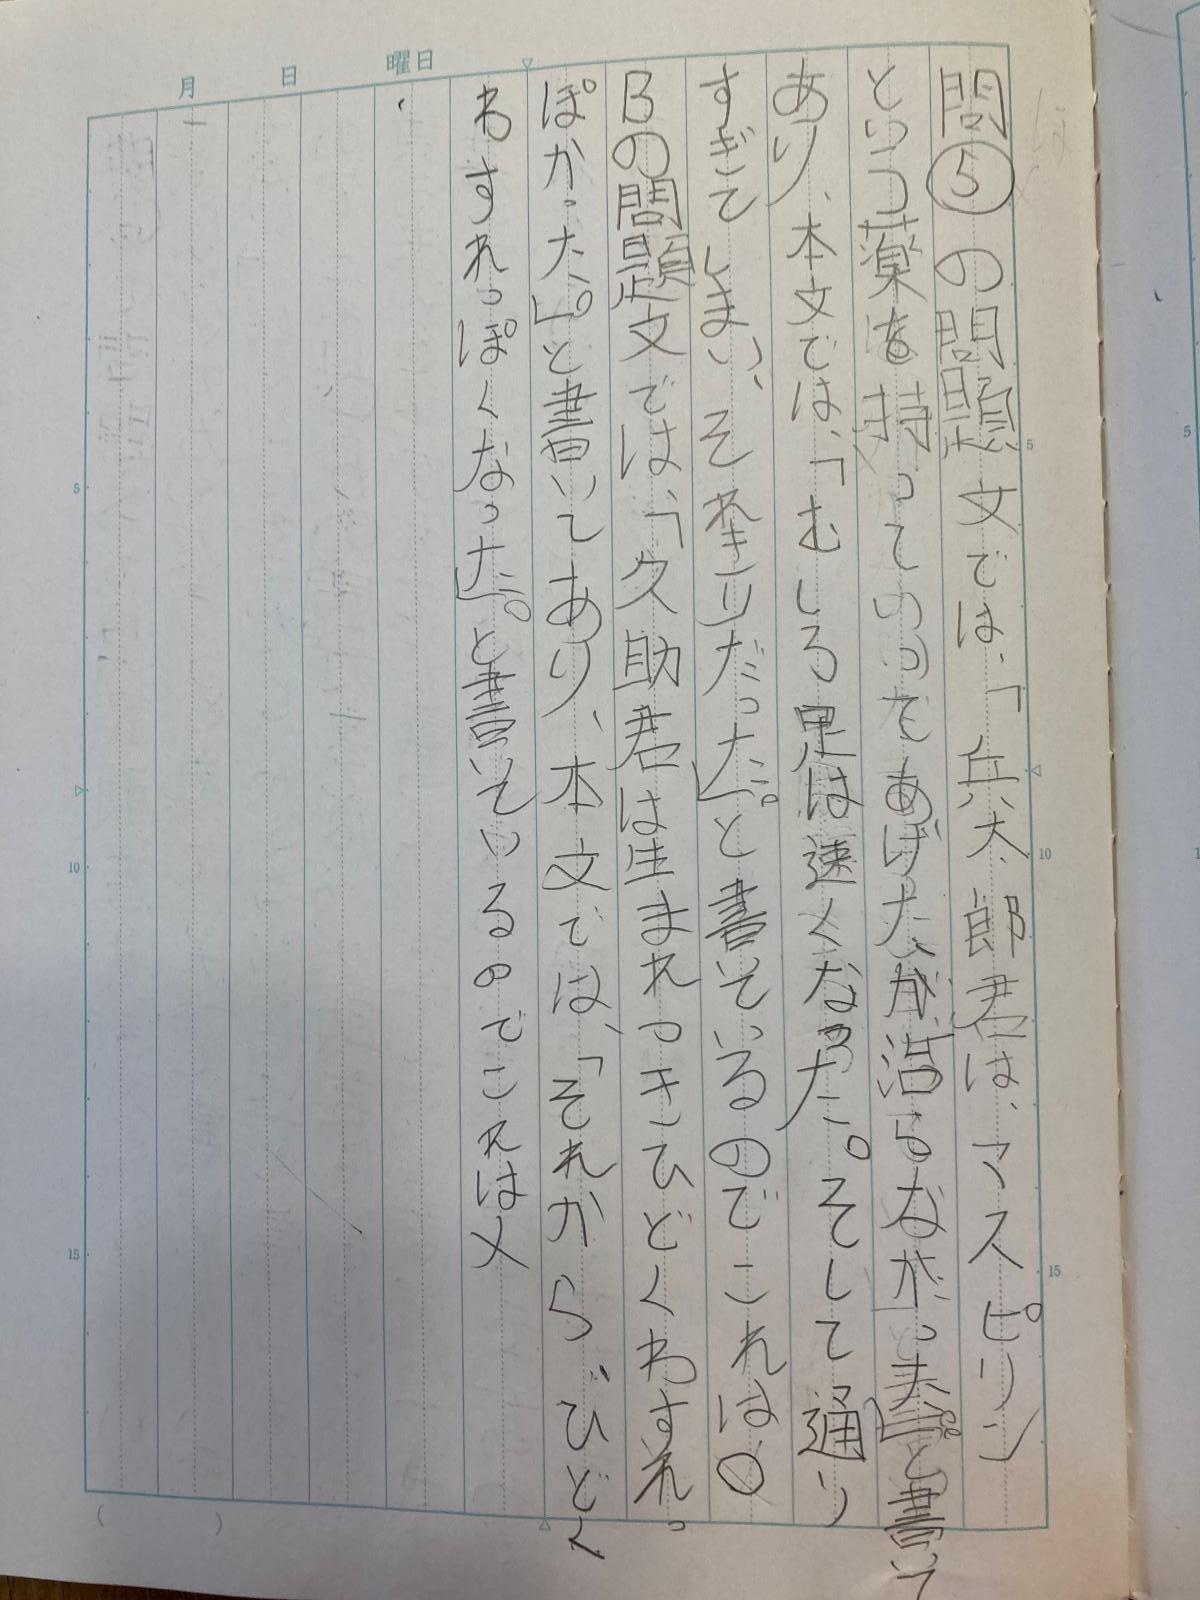 月　日　曜日
問⑤の問題文では、「兵太郎君は、マスピリン
という薬を持っていのってあげたが、治らなかった。」と書いて
あり、本文では、「むしろ足は速くなった。そして通り
すぎてしまい、それきりだった」。と書いているのでこれは、○
Bの問題文では、「久助君は生まれつきひどくわすれっ
ぽかった。」と書いてあり、本文では、「それから、ひどく
わすれっぽくなった」。と書いているのでこれは×
5
10
15
5
10
15